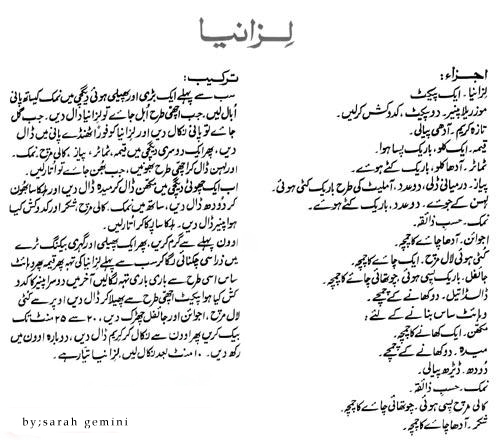 لزانیا
اجزاء:
لزانیا۔ ایک پیکٹ
موزریلا پنیر۔ دو پیکٹ، کدوکش کرلیں۔
تازہ کریم۔ آدھی پیالی۔
قیمہ۔ ایک کلو، باریک پسا ہوا۔
ٹماٹر۔ آدھا کلو، باریک کٹے ہوئے۔
پیاز۔ درمیانی ڈلی، دو عدد، آملیٹ کی طرح باریک کٹی ہوئی۔
لہسن کے جوئے۔ دو عدد، باریک کٹے ہوئے۔
نمک۔ حسب ذائقہ۔
اجوائن۔ آدھا چائے کا چمچہ۔
کٹی ہوئی لال مرچ۔ ایک چائے کا چمچہ۔
جائفل۔ باریک پسی ہوئی، چوتھائی چائے کا چمچہ۔
ڈالڈا تیل۔ دو کھانے کے چمچے۔
وہائٹ ساس بنانے کے لئے:
مکھن۔ ایک کھانے کا چمچہ۔
میدہ۔ دو کھانے کے چمچے۔
دودھ۔ ڈیڑھ پیالی۔
نمک۔ حسب ذائقہ۔
کالی مرچ پسی ہوئی۔ چوتھائی چائے کا چمچہ۔
شکر۔ آدھا چائے کا چمچہ۔
ترکیب:
سب سے پہلے ایک بڑی اور پھیلی ہوئی دیگچی میں نمک کیساتھ پانی
اُبال لیں۔ جب اچھی طرح اُبل جائے تو لزانیا ڈال دیں۔ جب گل
جائے تو پانی نکال دیں اور لزانیا کو فوراً ٹھنڈے پانی میں ڈال
دیں، پھر ایک دوسری دیگچی میں قیمہ، ٹماٹر، پیاز، کالی مرچ، نمک۔
اور لہسن ڈال کر اچھی طرح بھونیں، جب بھُن جائے تو اُتار لیں۔
اب ایک چھوٹی دیگچی میں مکھن ڈال کر میدہ ڈال دیں اور ہلکا سا بھون
کر دودھ ڈال دیں، ساتھ میں نمک، کالی مرچ، شکر اور کدوکش کیا
ہوا پنیر ڈال دیں۔ ہلکا سا پکا کر اُتار لیں۔
اوون پہلے سے گرم کریں، پھر ایک پھیلی اور گہری بیکنگ ٹرے
میں ذرا سی چکنائی لگا کر سب سے پہلے لزانیا کی تہہ پھر قیمہ پھر وہائٹ
ساس اسی طرح سے باری باری تہہ لگائیں آخر میں دوسرا پنیر کا کدو
کش کیا ہوا پیکٹ اچھی طرح سے پھیلا کر ڈال دیں اوپر سے کٹی
لال مرچ، اجوائن اور جائفل چھڑک دیں، ۲۰ سے ۲۵ منٹ تک
بیک کریں پھر اوون سے نکال کر کریم ڈال دیں، دوبارہ اوون میں
رکھ دیں۔ ۱۰ منٹ بعد نکال لیں، لزانیا تیار ہے۔
by;sarah gemini